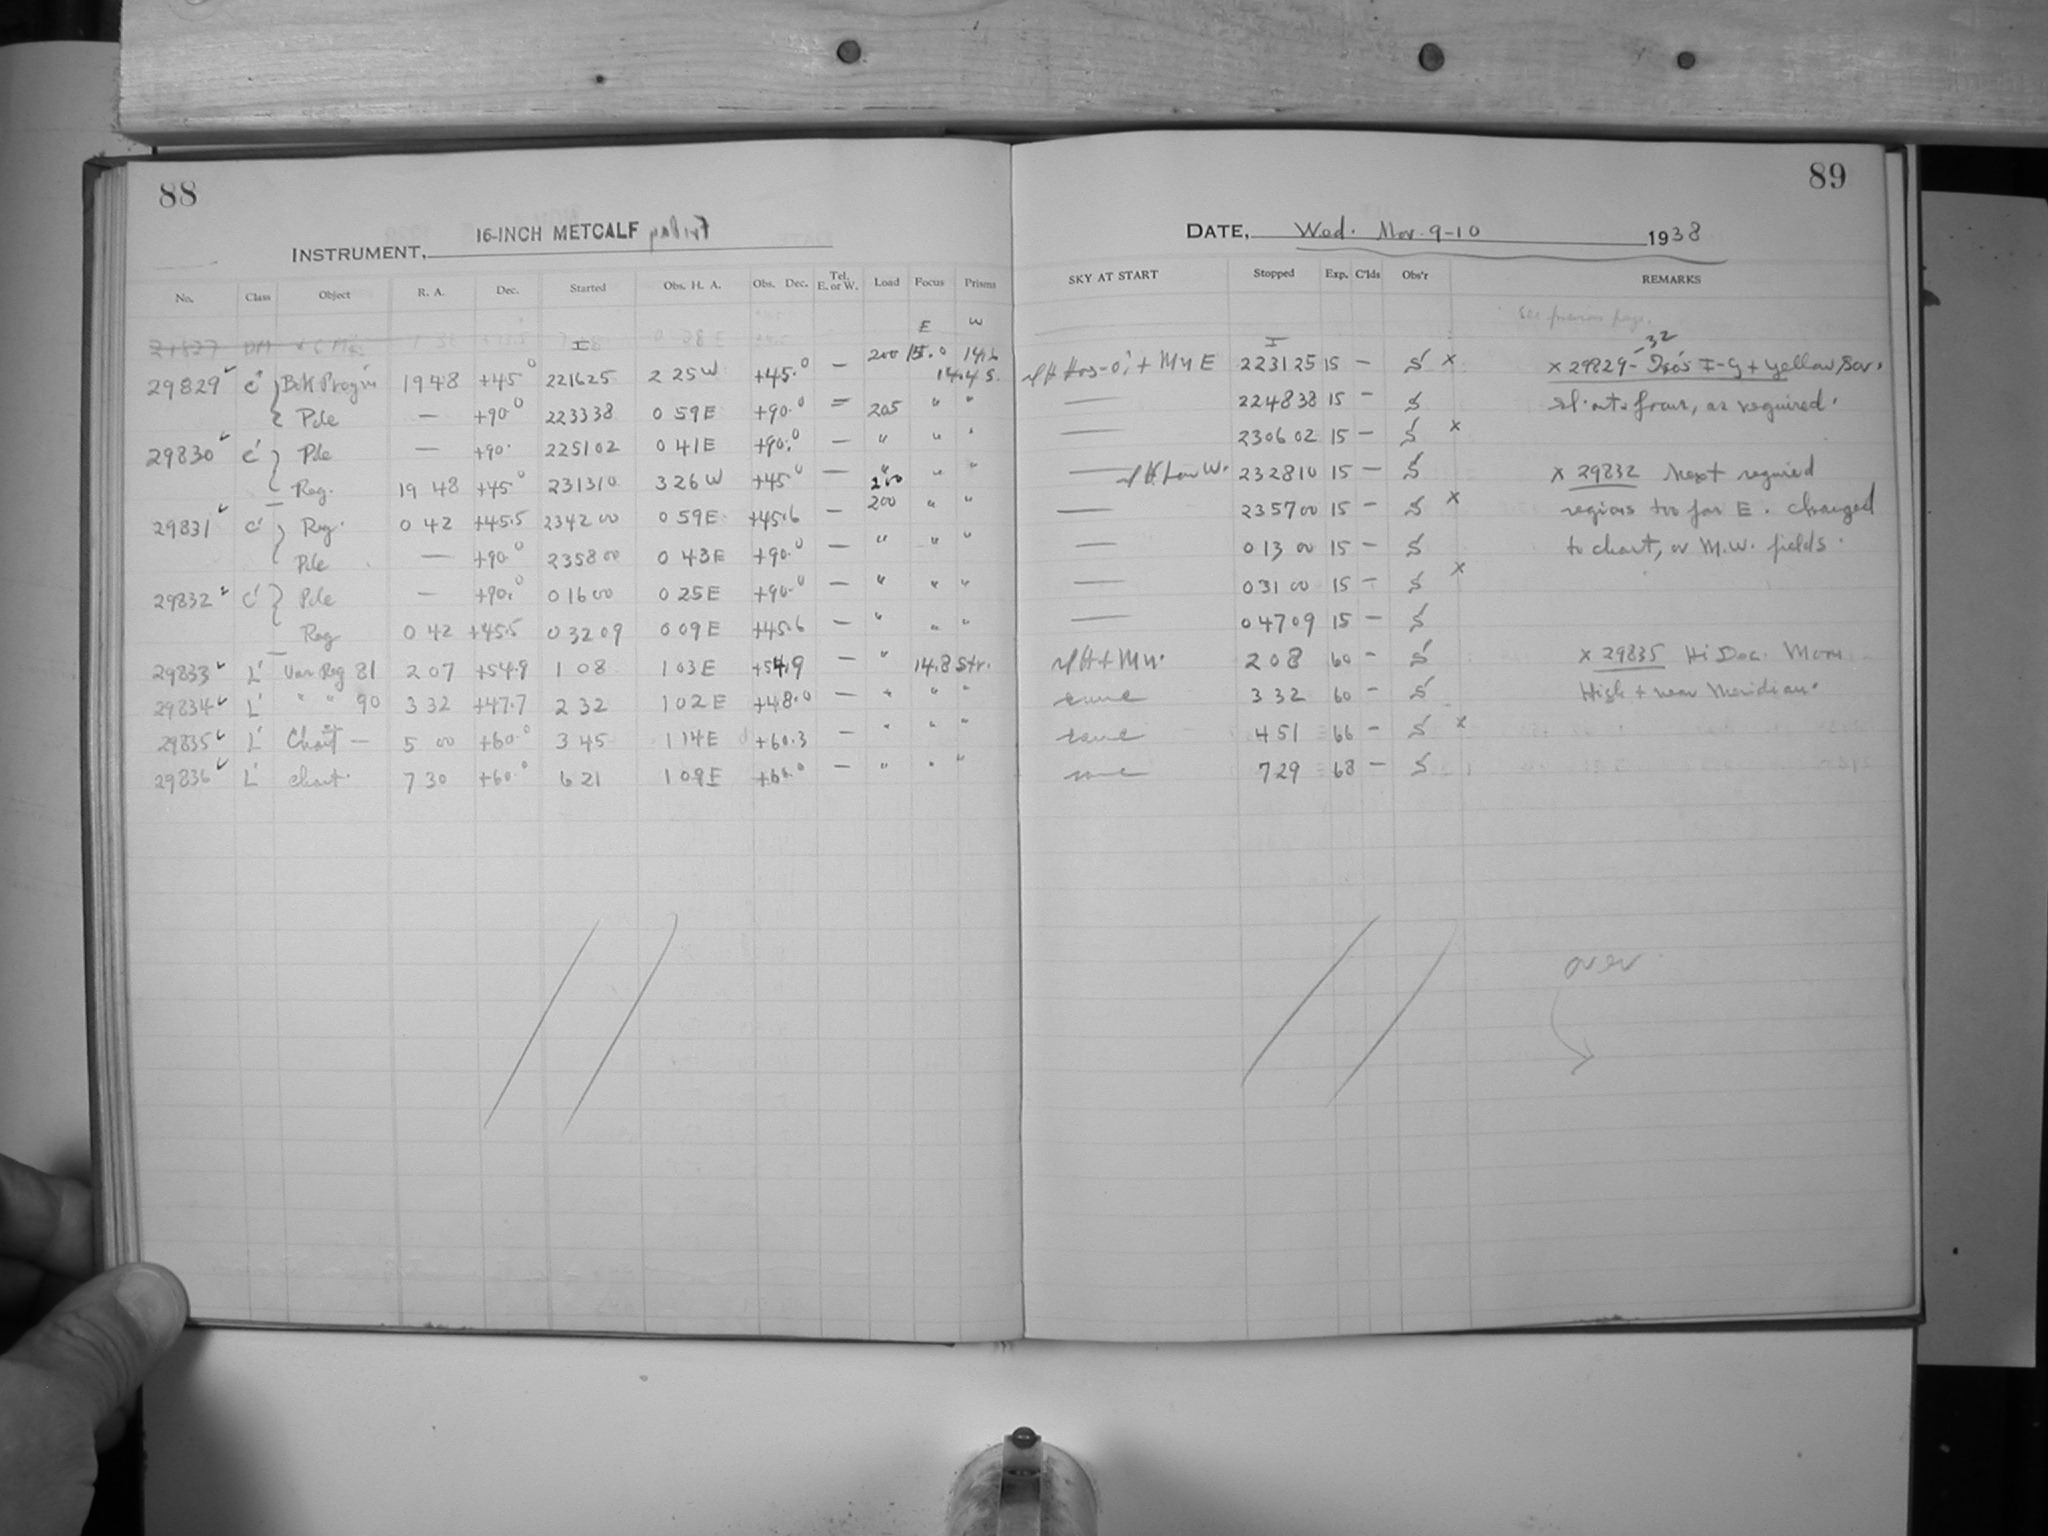 88
INSTRUMENT, 16-INCH METCALF
No. Class Object R. A. Dec. Started Obs. H. A. Obs. Dec. Tel. E. or W. Load Focus Prisms
E W
29829 C' Pole Reg. 19 48 +45.0 221625 2 25 W +45.0 — 200 15.0 14.6
14.4 S.
Pole — +90.0 223338 0 59 E +90.0 = 205 " "
29830 C' Pole — +90. 225102 0 41 E +90.0 — " " "
Reg. 19 48 +45.0 231310 3 26 W +45.0 — " " "
200
29831 C' Reg. 0 42 +45.5 234200 0 59 E +45.6 — 200 " "
Pole — +90.0 235800 0 43 E +90.0 — " " "
29832 C' Pole — +90.0 0 16 00 0 25 E +90.0 — " " "
Reg 0 42 +45.5 0 32 09 0 09 E +45.6 — " " "
29833 L' Var Reg 81 2 07 +54.9 1 08 1 03 E +54.9 — " 14.8 Str.
29834 L' " " 90 3 32 +47.7 2 32 1 02 E +48.0 — " " "
29835 L' Chart — 5 00 +60.0 3 45 1 14 E +60.3 — " " "
29836 L' chart. 7 30 +60.0 6 21 1 09 E +60.0 — " " "
89
DATE, Wed. Nov. 9-10 1938
SKY AT START Stopped Exp. C'lds Obs'r REMARKS
See previous page.
-32
+ Mn E 223125 15 — S x x 29829- I-G + yellow
— 224838 15 — S as required.
— 230602 15 — S x
Low W. 232810 15 — S x 29832 Next required
— 235700 15 — S x regions too far E. changed
— 0 13 00 15 — S to chart, or M.W. fields.
— 0 31 00 15 — S x
— 0 47 09 15 — S
+ Mn. 2 08 60 — S x 29835 Hi Dec. Moon
same 3 32 60 — S High + near Meridian.
same 4 51 66 — S x
same 7 29 68 — S
over